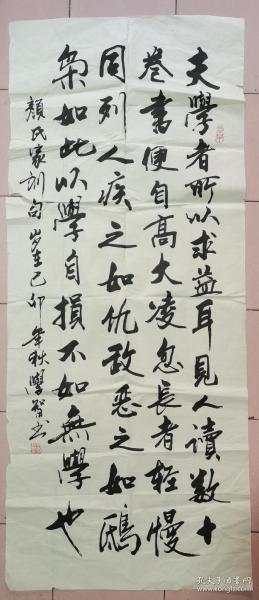 夫學者所以求益耳見人讀數十
卷書便自高大凌忽長者輕慢
同列人疾之如仇敌惡之如鴟
梟如此以學自損不如無學也
顏氏家訓句 岁在己卯年秋 學智书
孔夫子旧书网